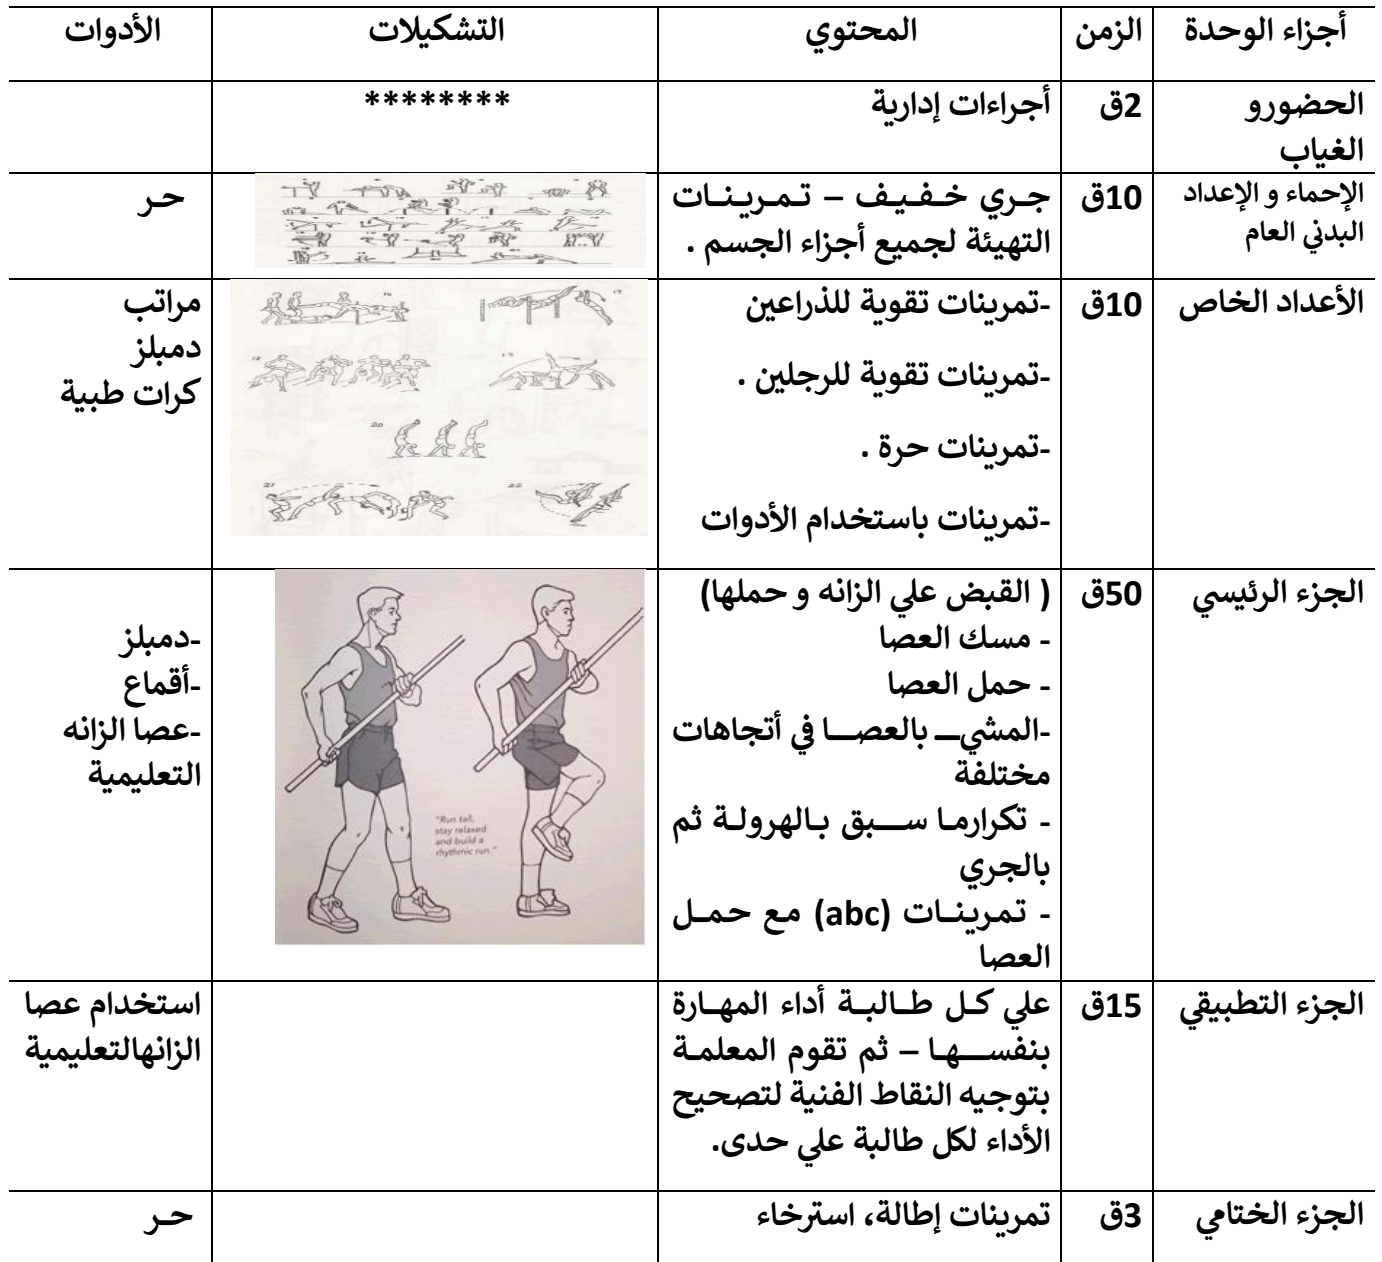 أجزاء الوحدة
الزمن
المحتوي
التشكيلات
الأدوات
الحضورو
الغياب
2ق
أجراءات إدارية
********
الإحماء و الإعداد
البدني العام
10ق
جري خفيف – تمرينات
التهيئة لجميع أجزاء الجسم .
حر
الأعداد الخاص
10ق
-تمرينات تقوية للذراعين
-تمرينات تقوية للرجلين .
-تمرينات حرة .
-تمرينات باستخدام الأدوات
20
21
22
مراتب
دمبلز
كرات طبية
الجزء الرئيسي
50ق
( القبض علي الزانه و حملها)
- مسك العصا
- حمل العصا
-المشي بالعصا في أتجاهات
مختلفة
- تكرارما سبق بالهرولة ثم
بالجري
- تمرينات (abc) مع حمل
العصا
"Run tall,
stay relaxed
and build a
rhythmic run."
-دمبلز
-أقماع
-عصا الزانه
التعليمية
الجزء التطبيقي
15ق
علي كل طالبة أداء المهارة
بنفسها – ثم تقوم المعلمة
بتوجيه النقاط الفنية لتصحيح
الأداء لكل طالبة علي حدى.
استخدام عصا
الزانهالتعليمية
الجزء الختامي
3ق
تمرينات إطالة، استرخاء
حر